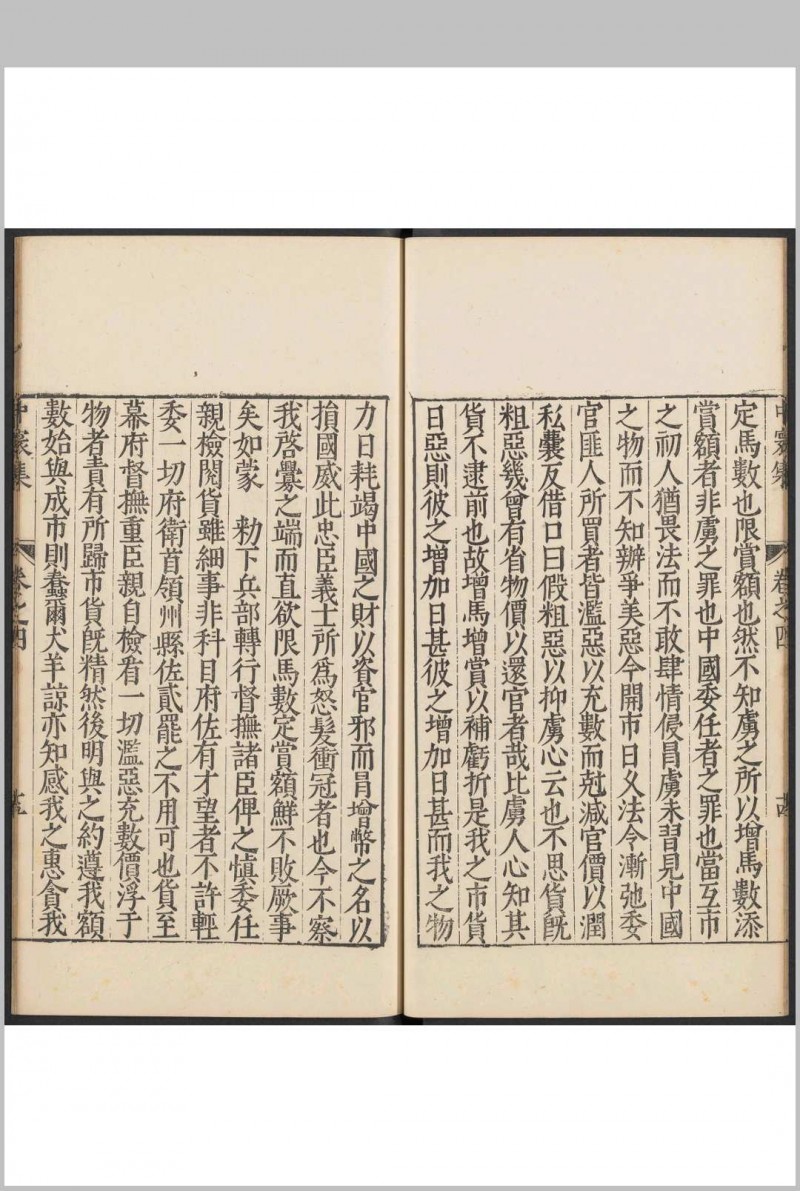 中寰集
卷之四
定馬數也限賞額也然不知虜之所以增馬數添
賞額者非虜之罪也中國委任者之罪也當互市
之初人猶畏法而不敢肆情侵冐虜未習見中國
之物而不知辦爭美惡今開市日乆法令漸弛委
官匪人所買者皆濫惡以充數而尅減官價以潤
私囊反借口曰假粗惡以抑虜心云也不思貨旣
粗惡幾曾有省物價以還官者哉比虜人心知其
貨不逮前也故增馬增賞以補虧折是我之市貨
日惡則彼之增加日甚彼之增加日甚而我之物
力日耗竭中國之財以資官邪而冐增幣之名以
損國威此忠臣義士所爲怒髮衝冠者也今不察
我啓釁之端而直欲限馬數定賞額鮮不敗厥事
矣如蒙　勑下兵部轉行督撫諸臣俾之愼委任
親檢閱貨雖細事非科目府佐有才望者不許輕
委一切府衛首領州縣佐貳罷之不用可也貨至
幕府督撫重臣親自檢看一切濫惡充數價浮于
物者責有所歸市貨旣精然後明與之約遵我額
數始與成市則蠢爾犬羊諒亦知感我之惠貪我
中寰集
卷之四